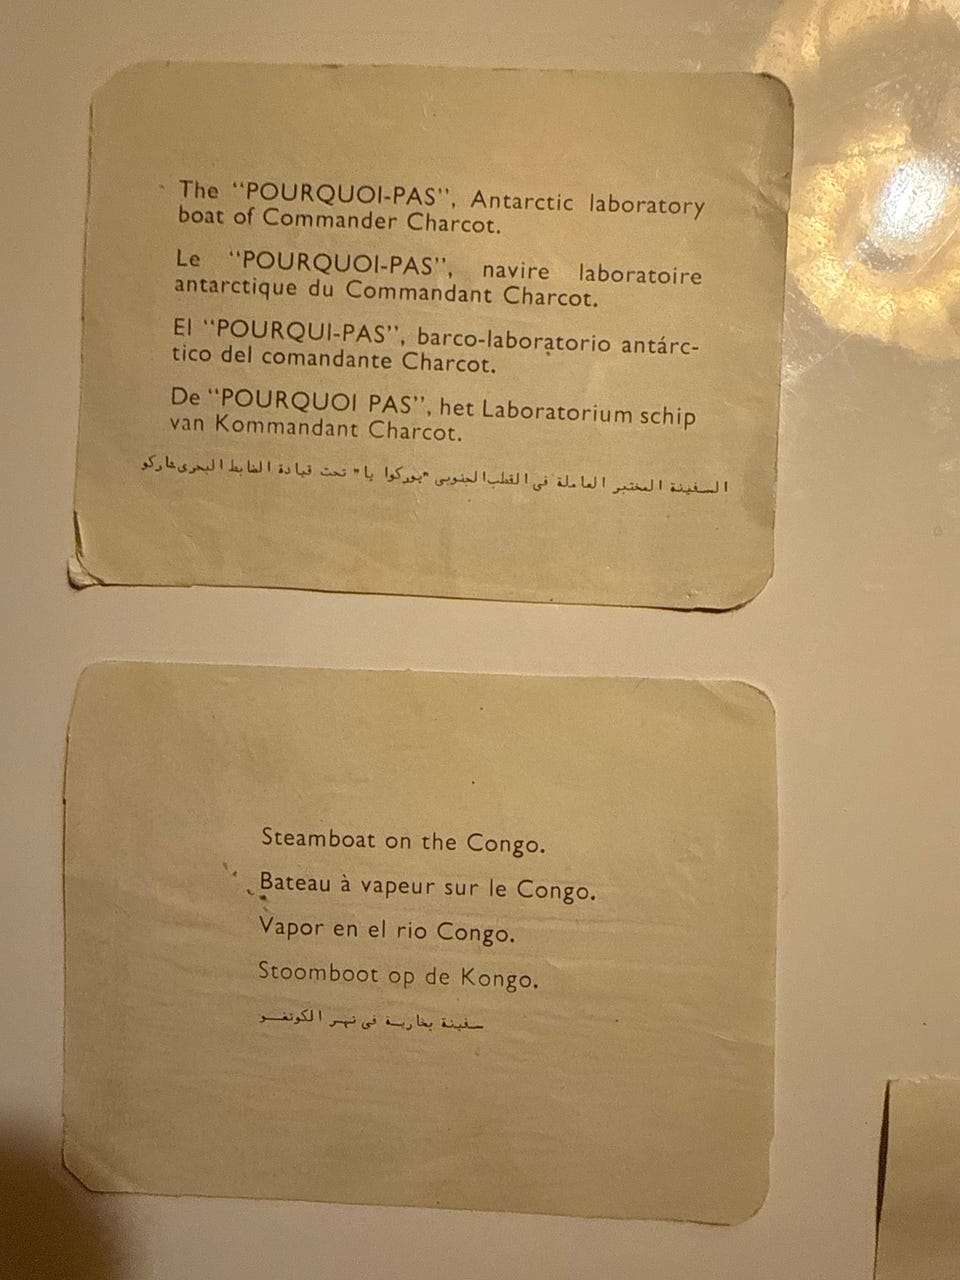 The “POURQUOI-PAS”, Antarctic laboratory
boat of Commander Charcot.
Le “POURQUOI-PAS”, navire laboratoire
antarctique du Commandant Charcot.
El “POURQUI-PAS”, barco-laboratorio antárc-
tico del comandante Charcot.
De “POURQUOI PAS”, het Laboratorium schip
van Kommandant Charcot.
السفينة المختبر العاملة فى القطب الجنوبى "بوركوا پا" تحت قيادة الضابط البحرى شاركو
Steamboat on the Congo.
Bateau à vapeur sur le Congo.
Vapor en el rio Congo.
Stoomboot op de Kongo.
سفينة بخارية فى نهر الكونغو